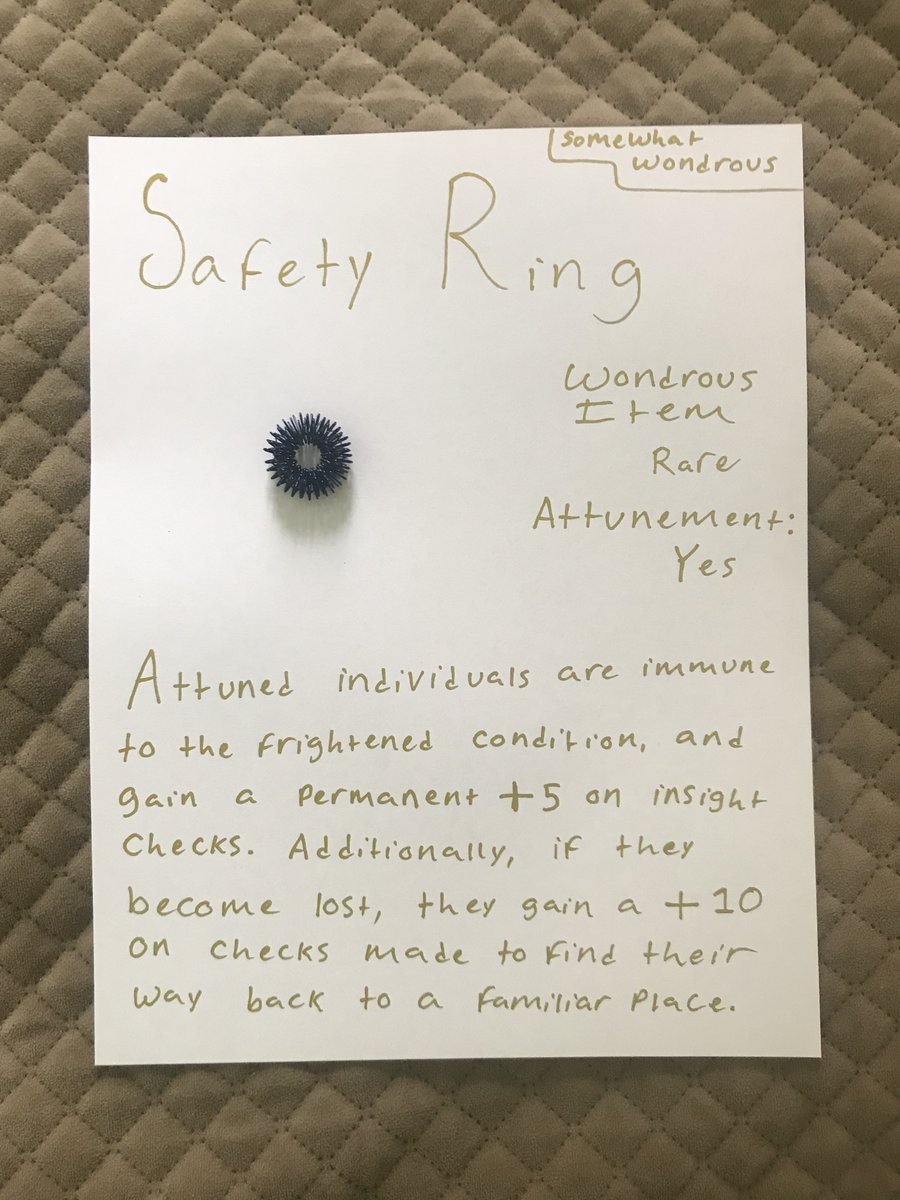 somewhat
wondrous
Safety Ring
Wondrous
Item
Rare
Attunement:
Yes
Attuned individuals are immune
to the frightened condition, and
gain a permanent +5 on insight
checks. Additionally, if they
become lost, they gain a +10
on checks made to find their
way back to a familiar place.